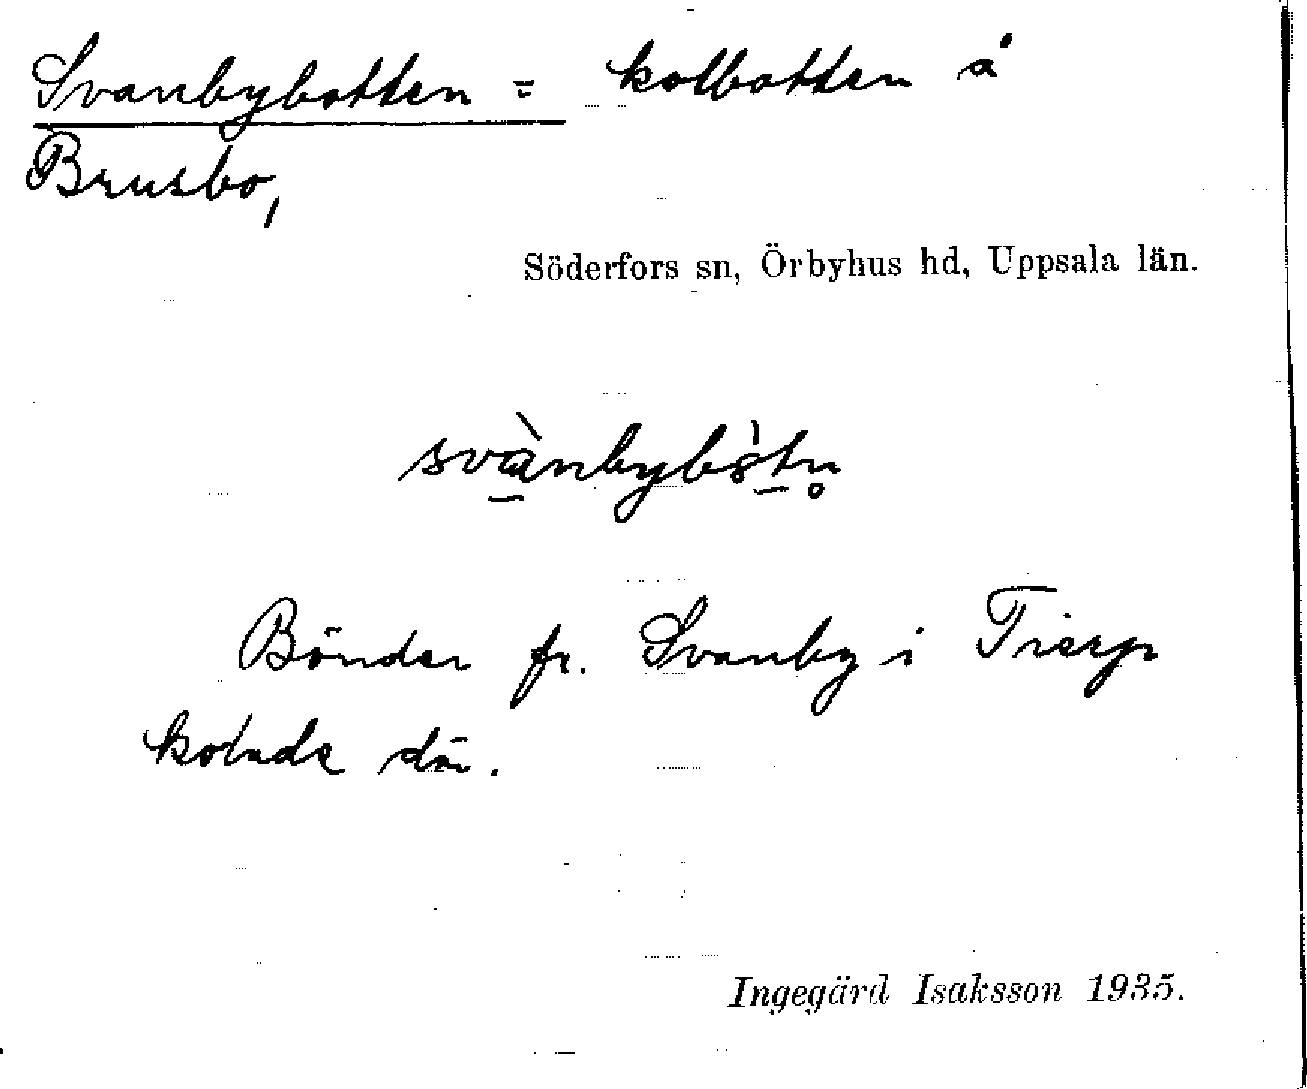 Svanbybotten = kolbotten å
Brusbo,
Söderfors sn, Örbyhus hd, Uppsala län.
Bönder fr. Svanby i Tierp
kolade där.
Ingegärd Isaksson 1935.